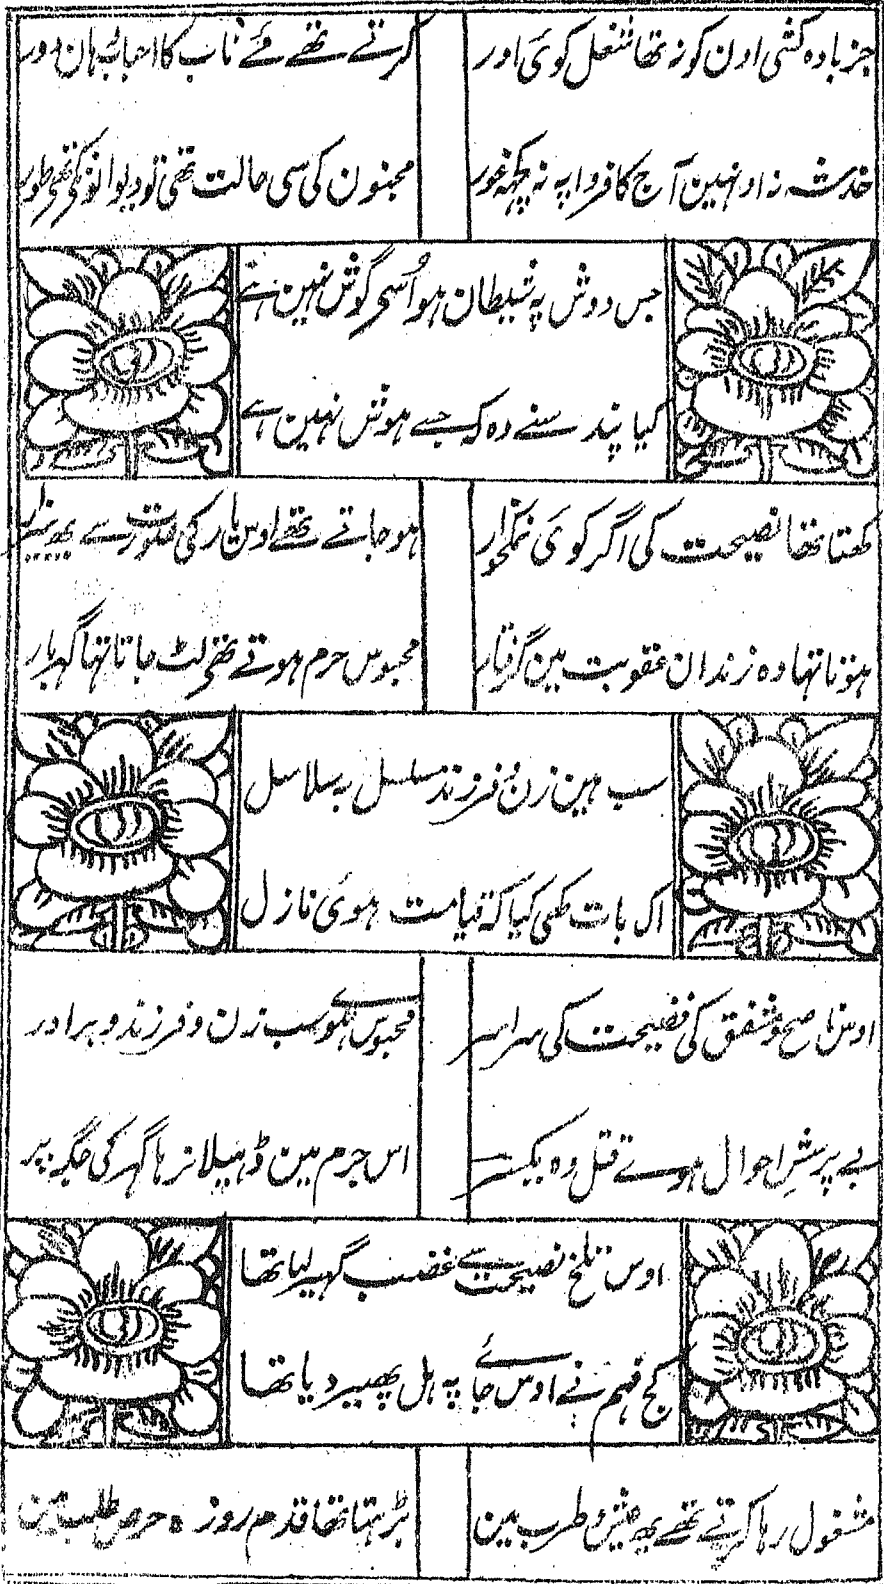 جز بادہ کشی اون کو نہ تھا شغل کوئی اور
کرتے تھے مئے ناب کا احباب ہان دور
خدشہ نہ اونہین آج کا فردا پہ نہ کچہہ غور
مجنون کی سی حالت تھی تو دیوانونکی تھی طور
جس دوش پہ شیطان ہو اُسے گوش نہین ہے
کیا پند سنے وہ کہ جسے ہوش نہین ہے
کھتا تھا نصیحت کی اگر کوئی نمکخوار
ہو جاتے تھے اوس یار کی صورت سے یہ بیزار
ہوتا تہا وہ زندان عقوبت مین گرفتار
محبوس حرم ہوتے تھے لٹ جاتا تہا گہر بار
سب ہین زن و فرزند مسلسل بہ سلاسل
اک بات کھی کیا کہ قیامت ہوئی نازل
اوس ناصح مشفق کی فضیحت کی سراسر
محبوس ہوے سب زن و فرزند و برادر
بے پرسشِ احوال ہوے قتل وہ یکسر
اس جرم مین ڈہیلا نرہا گہر کی جگہ پر
اوس تلخ نصیحت سے غضب گہیر لیا تھا
کج فہم نے اوس جائے پہ ہل پھیر دیا تھا
مشغول رہا کرتے تھے یہ عیش و طرب مین
بڑہتا تھا قدم روز ہ حرص طلب مین